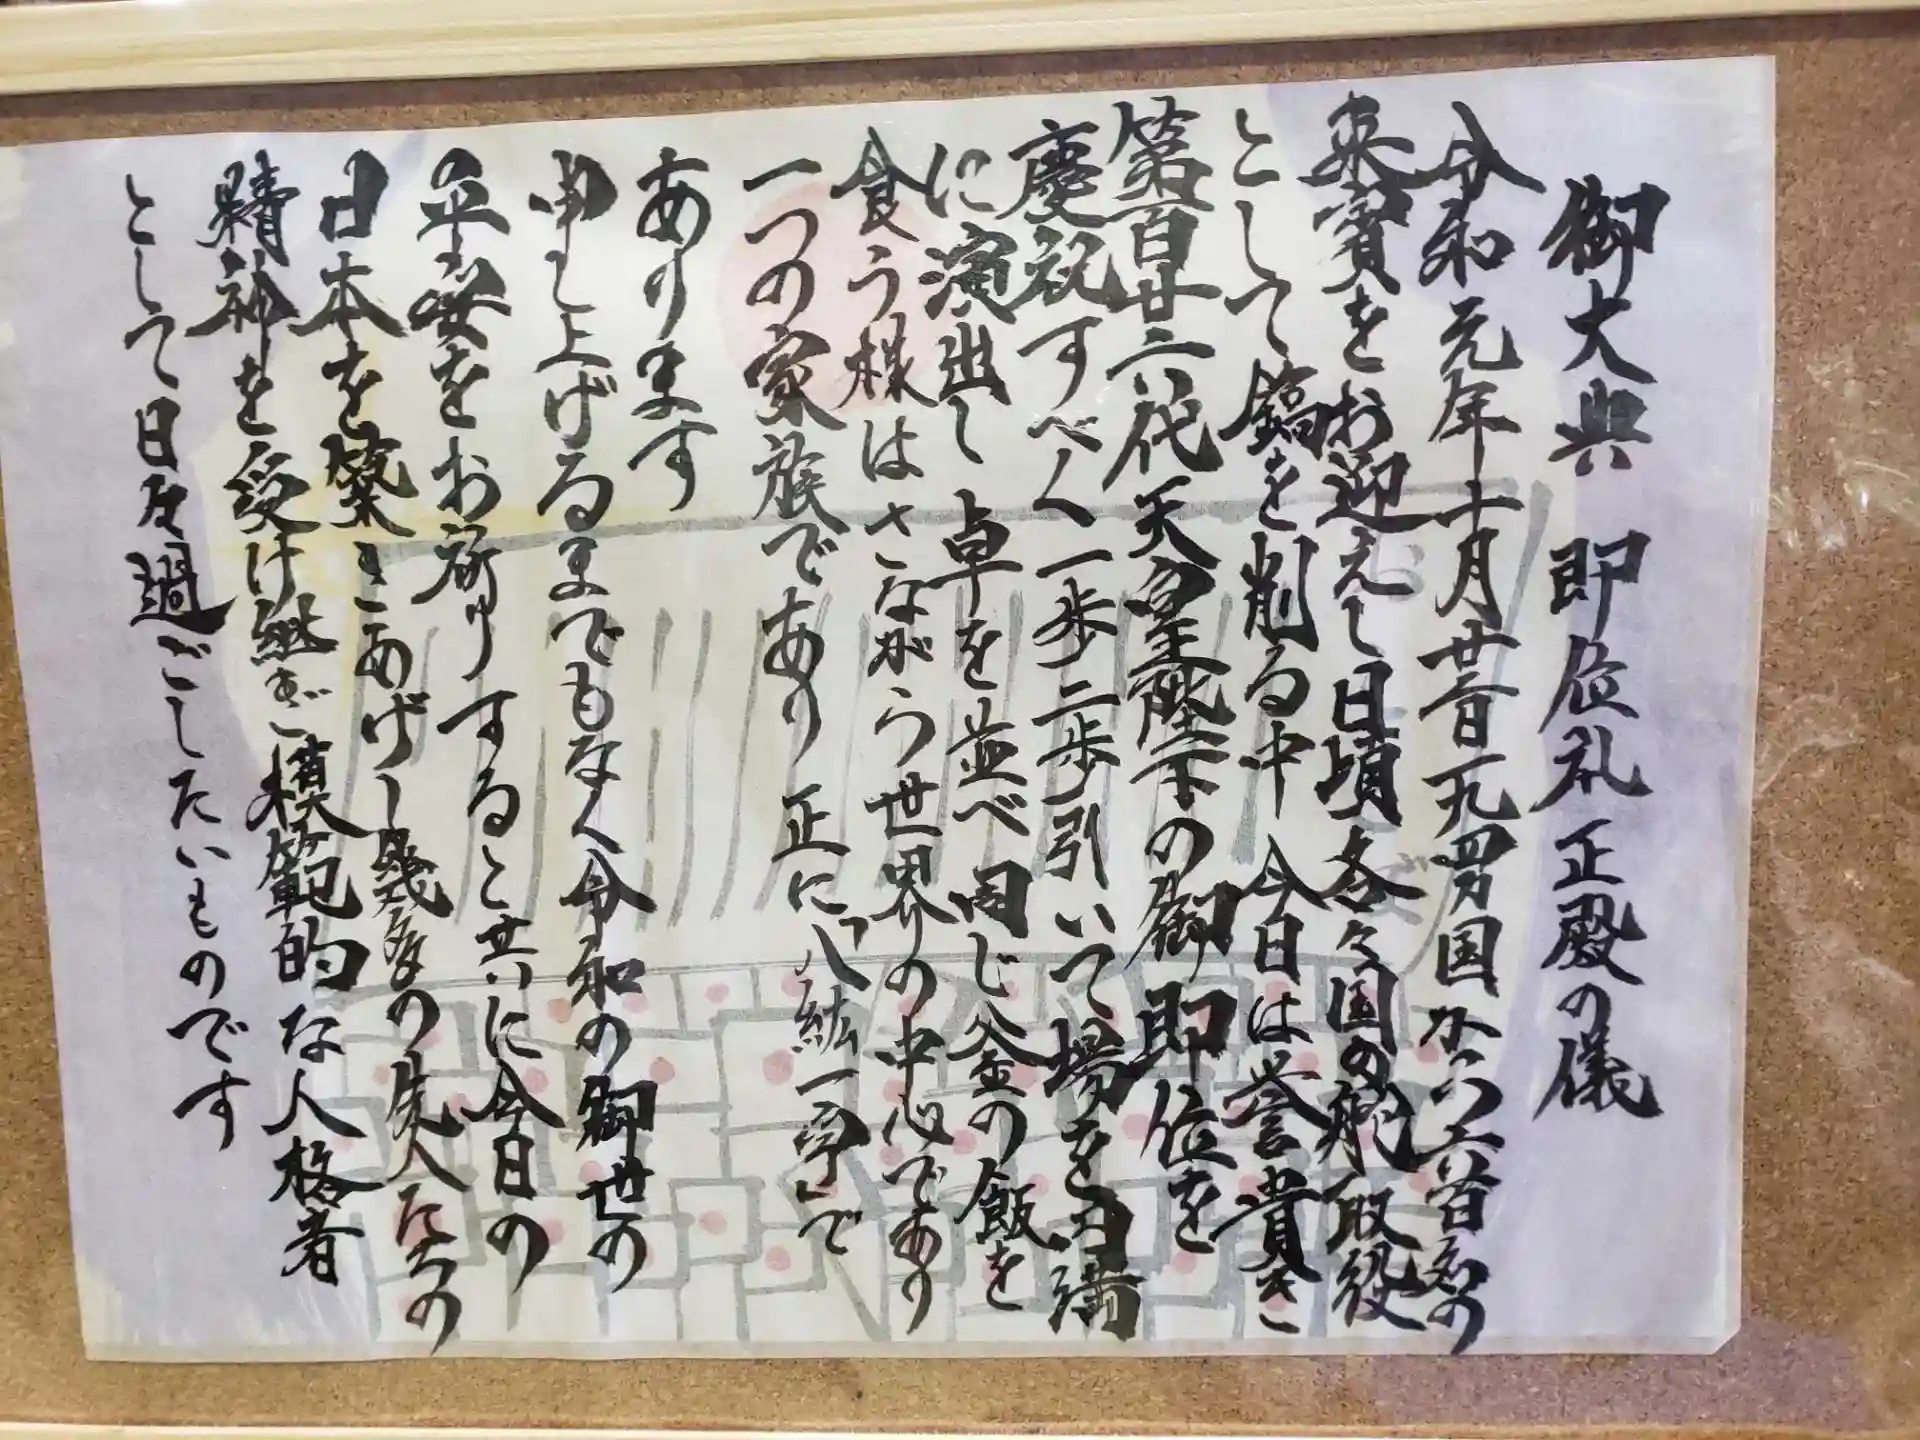 御大典 即位礼正殿の儀
令和元年十月廿二日 一九四万国から六百名の
来賓をお迎えし日頃各々国の舵取役
として鎬を削る中 今日は誉貴き
第百廿六代天皇陛下の御即位を
慶祝すべく一歩二歩引いて場を円満
に演出し 卓を並べ同じ釜の飯を
食う様はさながら世界の中心であり
一つの家族であり 正に「八紘一宇」で
あります
申し上げるまでもなく令和の御世の
平安をお祈りすると共に今日の
日本を築きあげし幾多の先人たちの
精神を受け継ぎ模範的な人格者
として日々過ごしたいものです